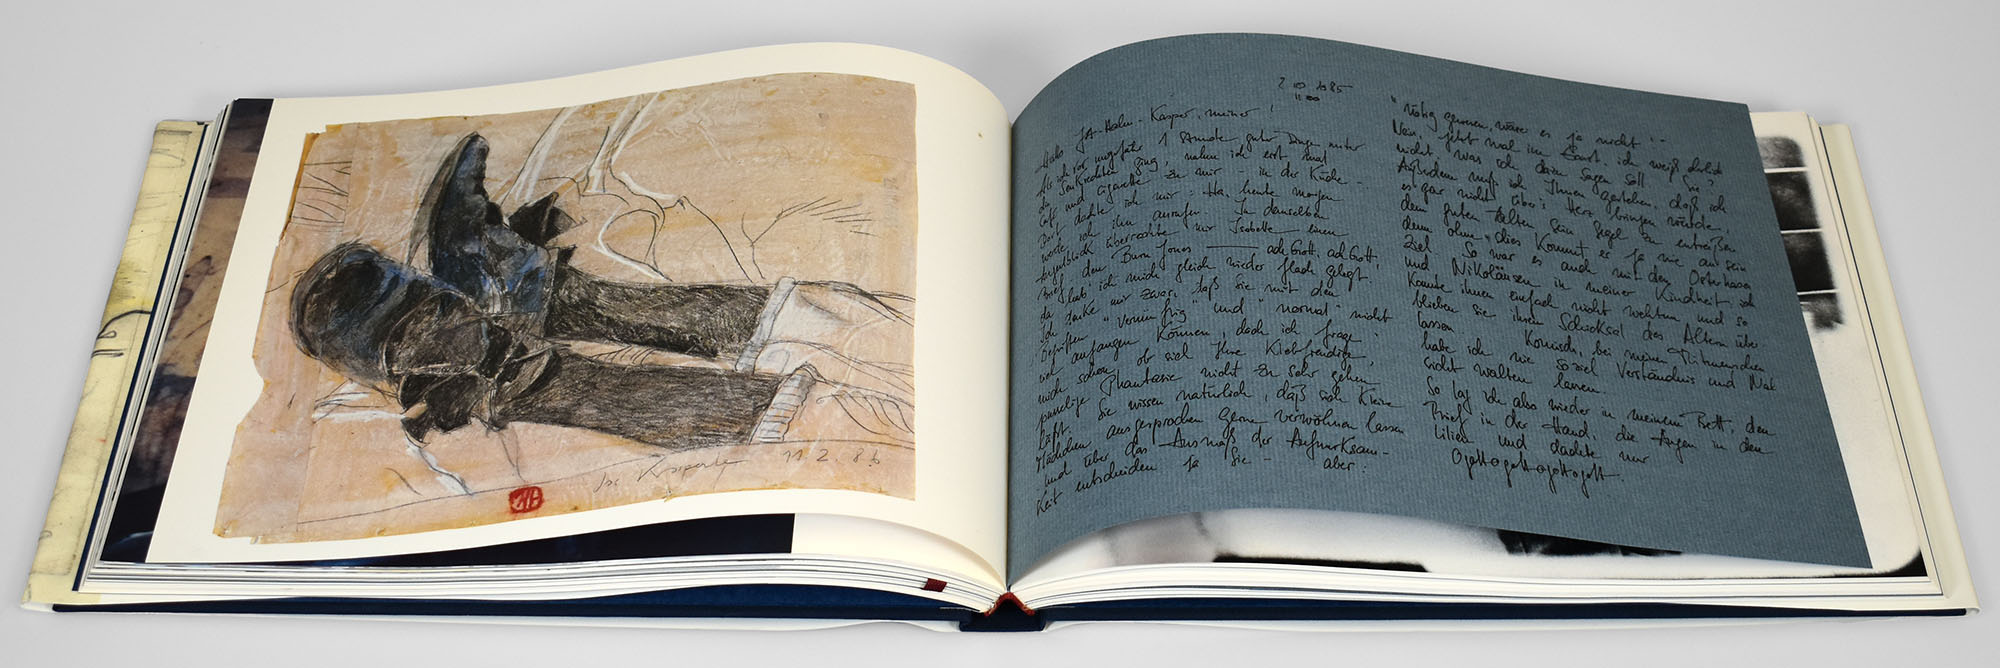 Jos Kasperle 11.2.86
2 1085
11 00
Hallo Kasper, meiner!
Als ich vor ungefähr 1 Stunde guter Dinge unter
die Senkrechten ging, nahm ich erst mal
Luft und Cigarette zu mir - in der Küche -
Dort dachte ich mir: Ha, heute morgen
werde ich ihn anrufen. In demselben
Augenblick überreichte mir Isabelle einen
Brief, den Burn Jones — ach Gott, ach Gott,
da hab' ich mich gleich wieder flach gelegt.
Ich denke mir zwar, daß Sie mit den
Begriffen "vernünftig" und "normal" nicht
viel anfangen können, doch ich frage
mich schon, ob sich Ihre
Phantasie nicht zu sehr gehen
läßt. Sie wissen natürlich, daß sich kleine
Mädchen ausgesprochen gerne verwöhnen lassen
und über das Ausmaß der Aufmerksam-
keit entscheiden ja Sie - aber:
"nötig gewesen, wäre es ja nicht!" -
Nein, jetzt mal im Ernst, ich weiß
nicht was ich dazu sagen soll. Sie?
Außerdem muß ich Ihnen gestehen, daß ich
es gar nicht über's Herz bringen würde,
dem guten Alten sein Segel zu entreißen
denn ohne dies kommt er ja nie an sein
Ziel. So war es auch mit den Osterhasen
und Nikoläusen in meiner Kindheit ich
konnte ihnen einfach nicht wehtun und so
blieben sie ihrem Schicksal des Alterns über-
lassen. Komisch, bei meinen Mitmenschen
habe ich nie soviel Verständnis und
sicht walten lassen.
So lag ich also wieder in meinem Bett, den
Brief in der Hand, die Augen in den
Lilien und dachte nur
Ogottogottogottogott.